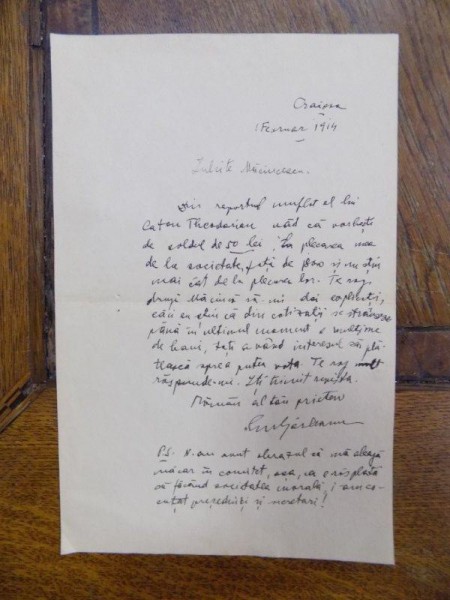 Craiova
1 Februar 1914
Iubite Măciuceanu.
Din raportul umflat al lui
Caton Theodorian văd că vorbești
de soldul de 50 lei. La plecarea mea
de la societate, față de și nu știu
mai cât de la plecarea lor. Te rog
dragă să-mi dai explicații,
căci eu știu că din cotizații se strânsese
până în ultimul moment o mulțime
de bani, toți având interesul să plă-
tească spre a putea vota. Te rog mult
răspunde-mi. Îți trimit revista.
Rămân al tău prieten
Em Gârleanu
P.S. N-au avut obrazul să mă aleagă
măcar în comitet, așa, ca o risplată
că făcând societatea morală, i am
președinți și secretari!